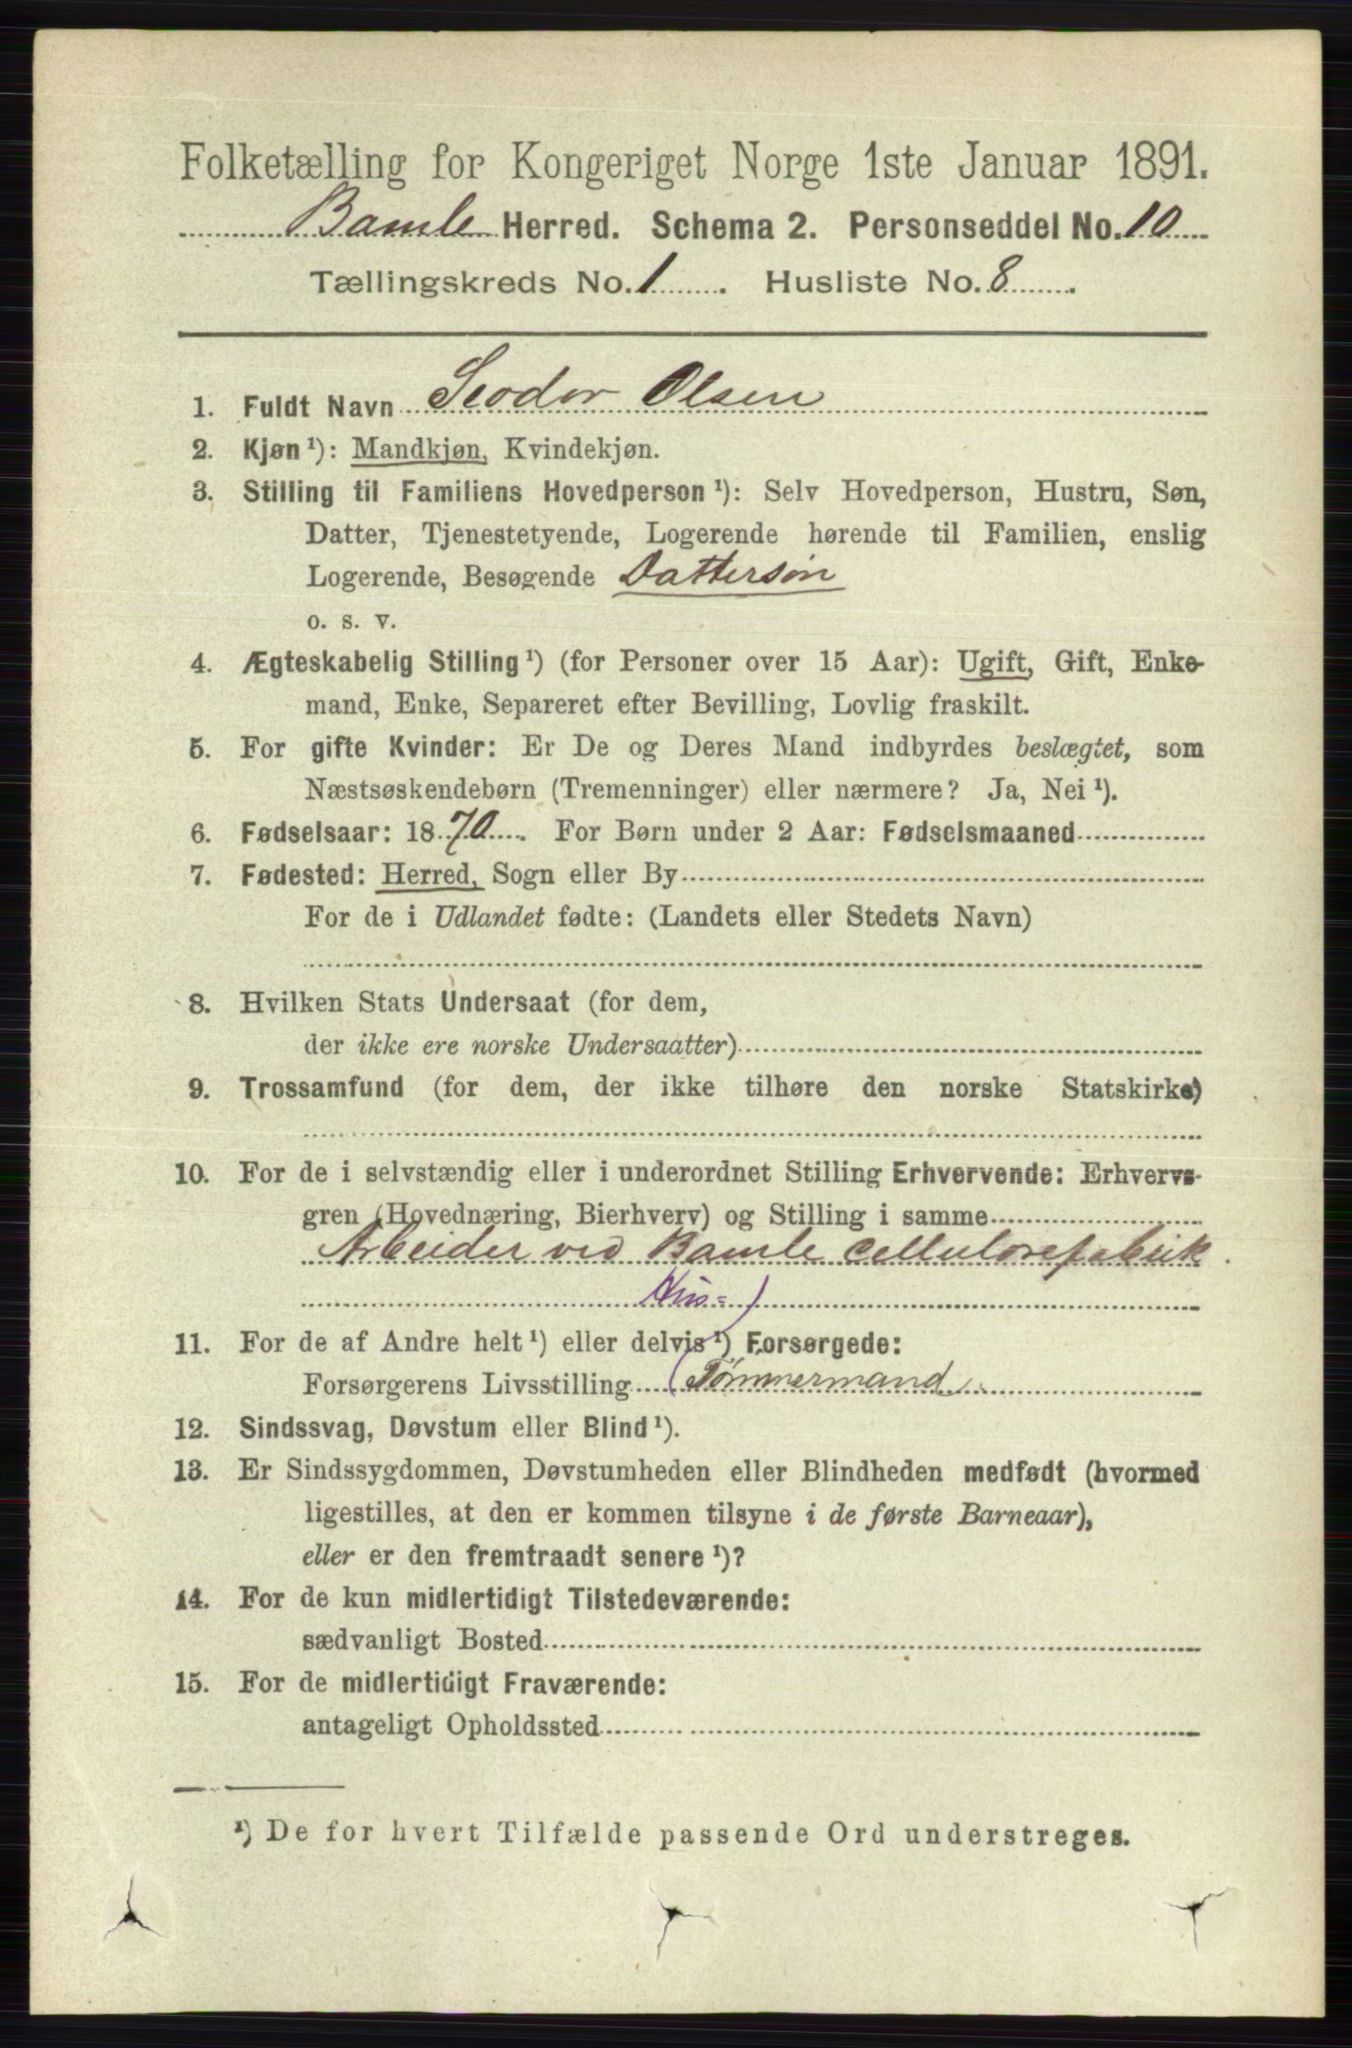 Folketælling for Kongeriget Norge 1ste Januar 1891.
Bamle Herred. Schema 2. Personseddel No. 10
Tællingskreds No. 1. Husliste No. 8.
1. Fuldt Navn Teodor Olsen
2. Kjøn ¹): Mandkjøn, Kvindekjøn.
3. Stilling til Familiens Hovedperson ¹): Selv Hovedperson, Hustru, Søn,
Datter, Tjenestetyende, Logerende hørende til Familien, enslig
Logerende, Besøgende Dattersøn
o. s. v.
4. Ægteskabelig Stilling ¹) (for Personer over 15 Aar): Ugift, Gift, Enke-
mand, Enke, Separeret efter Bevilling, Lovlig fraskilt.
5. For gifte Kvinder: Er De og Deres Mand indbyrdes beslægtet, som
Næstsøskendebørn (Tremenninger) eller nærmere? Ja, Nei ¹).
6. Fødselsaar: 1870. For Børn under 2 Aar: Fødselsmaaned
7. Fødested: Herred, Sogn eller By
For de i Udlandet fødte: (Landets eller Stedets Navn)
8. Hvilken Stats Undersaat (for dem,
der ikke ere norske Undersaatter)
9. Trossamfund (for dem, der ikke tilhøre den norske Statskirke)
10. For de i selvstændig eller i underordnet Stilling Erhvervende: Erhvervs-
gren (Hovednæring, Bierhverv) og Stilling i samme
Arbeider ved Bamle Cellulosefabrik
Hus=)
11. For de af Andre helt ¹) eller delvis ¹) Forsørgede:
Forsørgerens Livsstilling (Tømmermand
12. Sindssvag, Døvstum eller Blind ¹).
13. Er Sindssygdommen, Døvstumheden eller Blindheden medfødt (hvormed
ligestilles, at den er kommen tilsyne i de første Barneaar),
eller er den fremtraadt senere ¹)?
14. For de kun midlertidigt Tilstedeværende:
sædvanligt Bosted
15. For de midlertidigt Fraværende:
antageligt Opholdssted
¹) De for hvert Tilfælde passende Ord understreges.